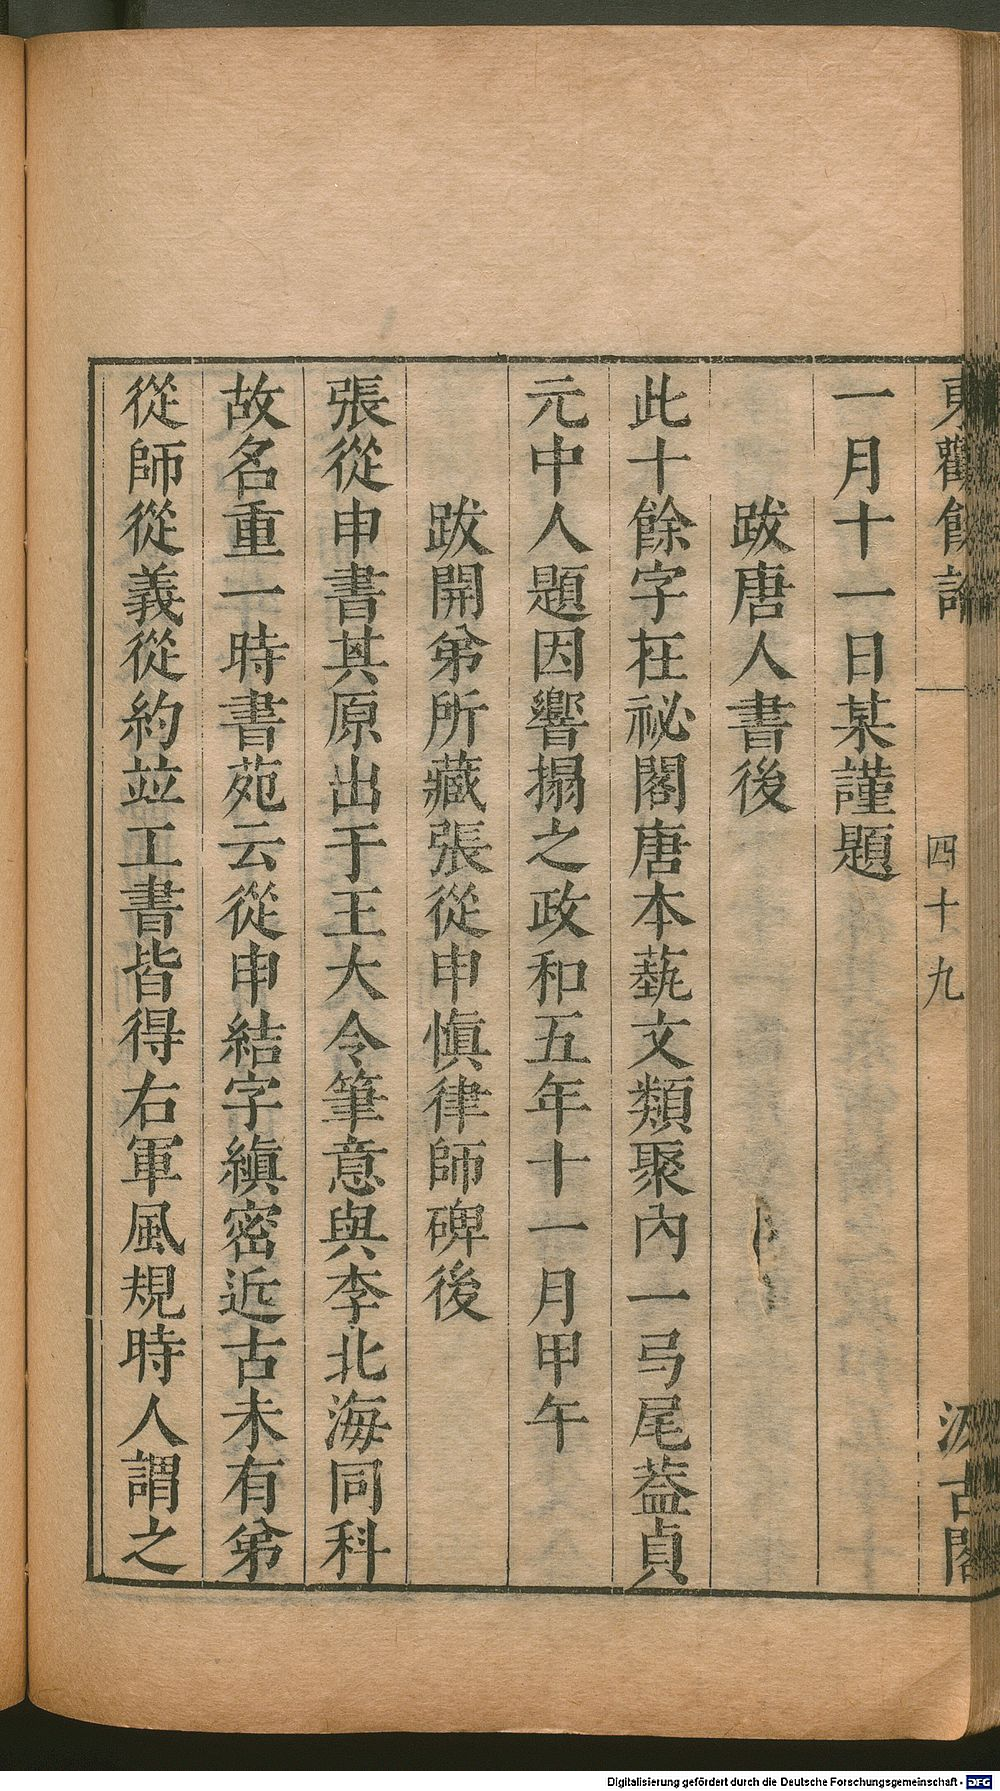 東觀餘論
四十九
汲古閣
一月十一日某謹題
跋唐人書後
此十餘字在祕閣唐本蓺文類聚內一弓尾葢貞
元中人題因響搨之政和五年十一月甲午
跋開弟所藏張從申慎律師碑後
張從申書其原出于王大令筆意與李北海同科
故名重一時書苑云從申結字縝密近古未有弟
從師從義從約並工書皆得右軍風規時人謂之
Digitalisierung gefördert durch die Deutsche Forschungsgemeinschaft - DFG